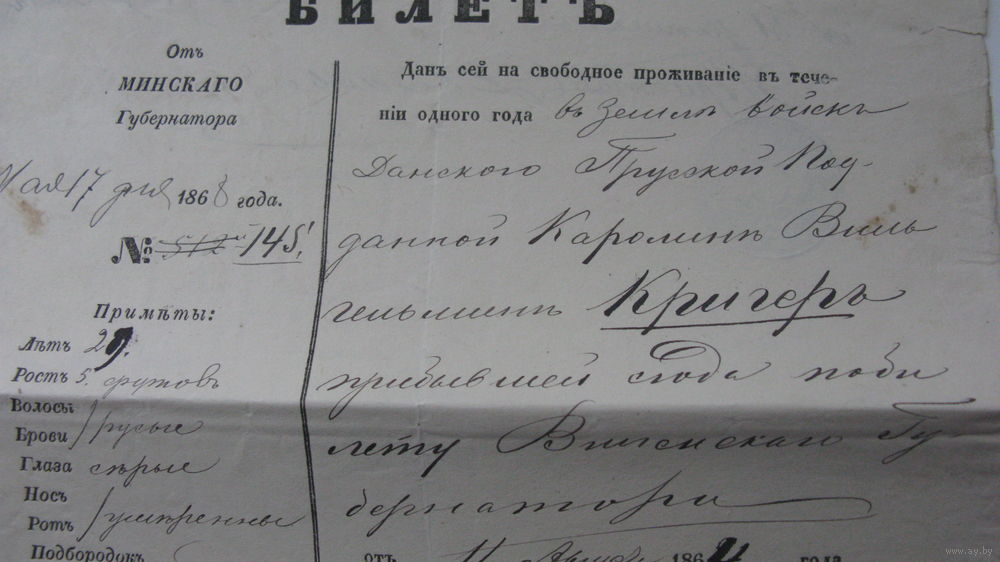 БИЛЕТЪ
Отъ
МИНСКАГО
Губернатора
Мая 17 дня 1868 года.
№: 512 145.
Примѣты:
Лѣтъ 29.
Ростъ 5. футовъ
Волосы
Брови русые
Глаза сѣрые
Носъ
Ротъ умѣренные
Подбородокъ
Данъ сей на свободное проживаніе въ тече-
ніи одного года въ Землѣ Войскъ
Данского Прусской Под-
данной Каролинѣ Виль
гельминѣ Кригеръ
прибывшей сюда поби
лету Виленскаго Гу-
бернатора
отъ 11 186 года
www.ay.by